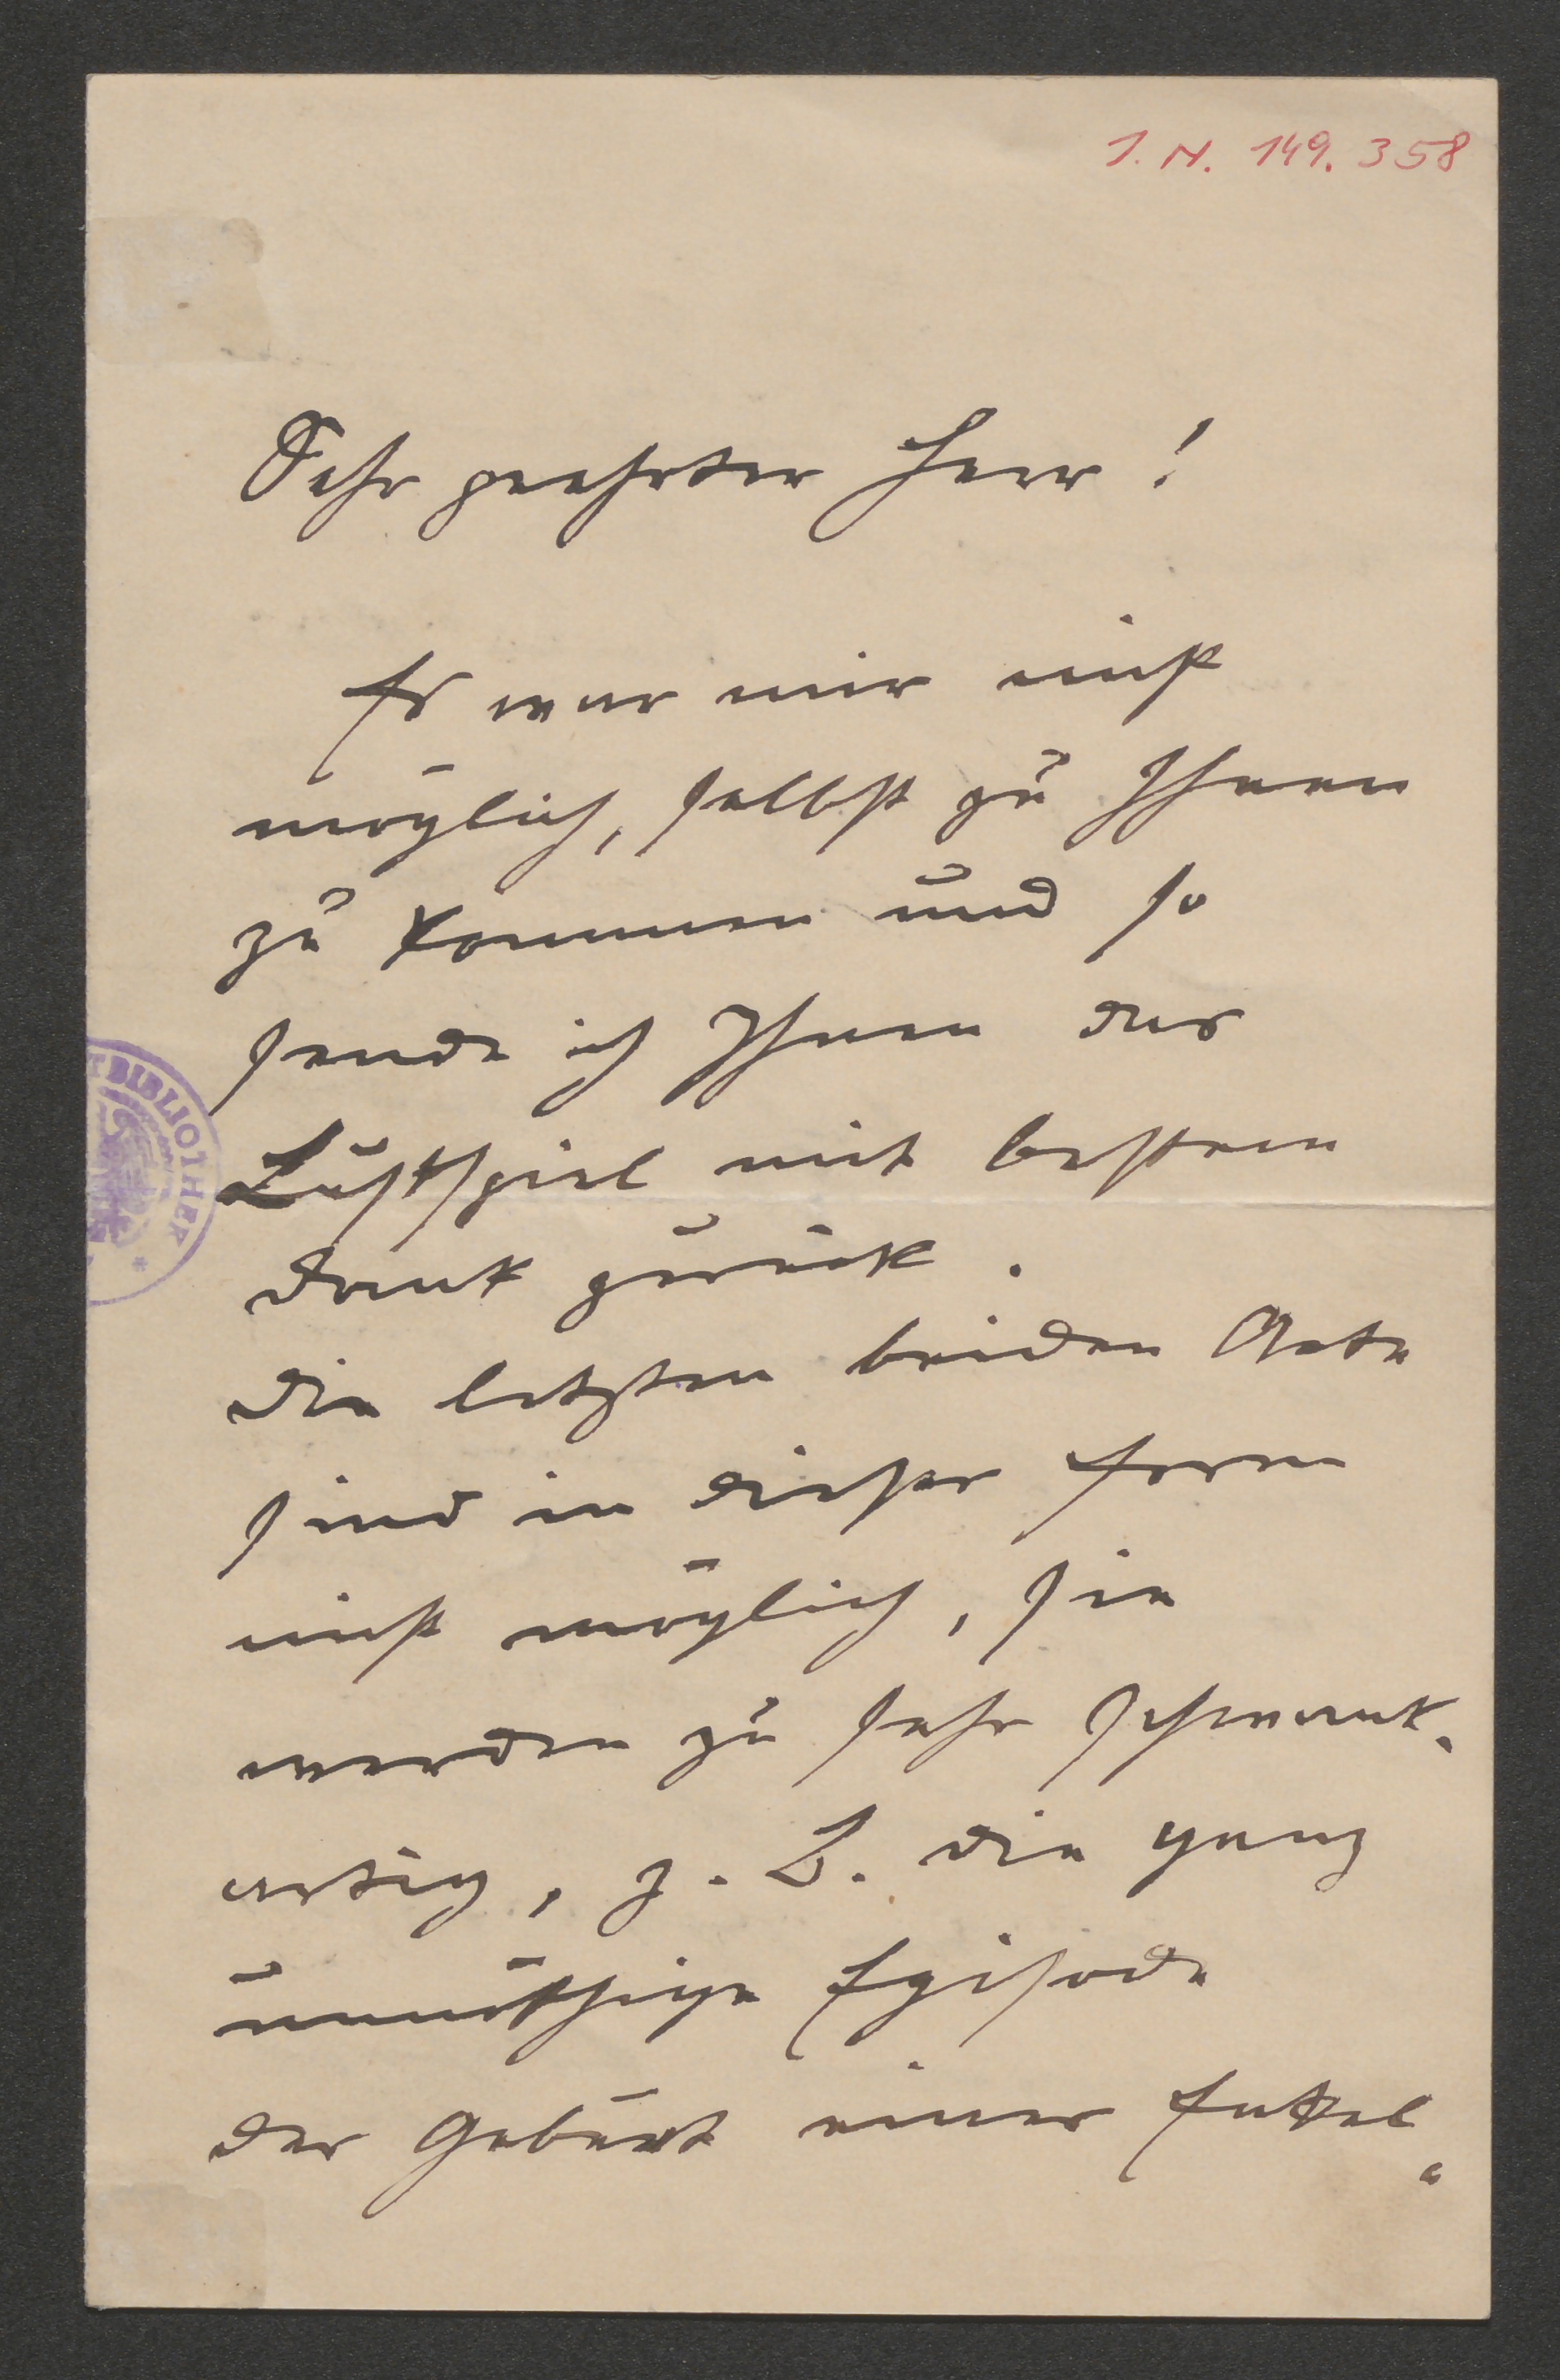 I. N. 149.358
Sehr geehrter Herr!
Es war mir nicht
möglich, selbst zu Ihnen
zu kommen und so
sende ich Ihnen das
Lustspiel mit bestem
Dank zurück.
Die letzten beiden Acte
sind in dieser Form
nicht möglich, sie
werden zu sehr schwank-
artig, z. B. die ganz
unnöthige Episode
der Geburt eines Enkel-
BIBLIOTHEK